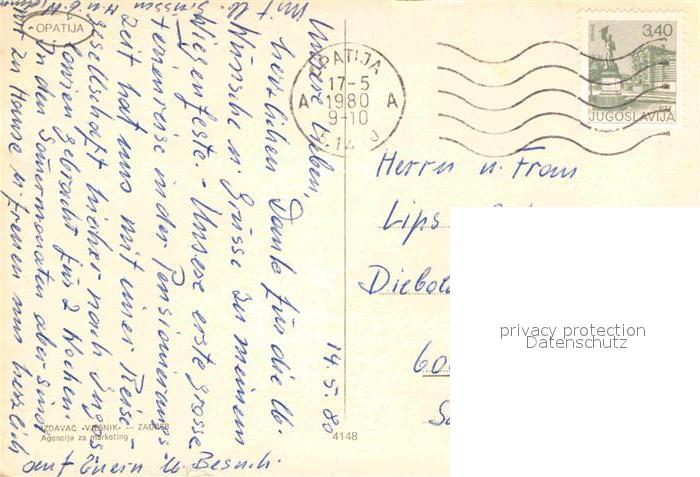 OPATIJA
14.5.80
Unsere Lieben,
herzlichen Dank für die lb.
Wünsche u. Grüsse zu meinem
Wiegenfeste. - Unsere erste grosse
Ferienreise in der Pensionierungs-
zeit hat uns mit einer Reise-
gesellschaft hieher nach Jugos-
lavien gebracht für 2 Wochen.
In den Sommermonaten aber sind
wir zu Hause u. freuen uns herzlich
auf Euern lb. Besuch.
Mit lb. Grüssen
IZDAVAČ «VJESNIK» — ZAGREB
Agencija za marketing
4148
OPATIJA
17-5
A 1980 A
9-10
3,40
JUGOSLAVIJA
Herrn u. Frau
Lips
Diebol
60
privacy protection
Datenschutz